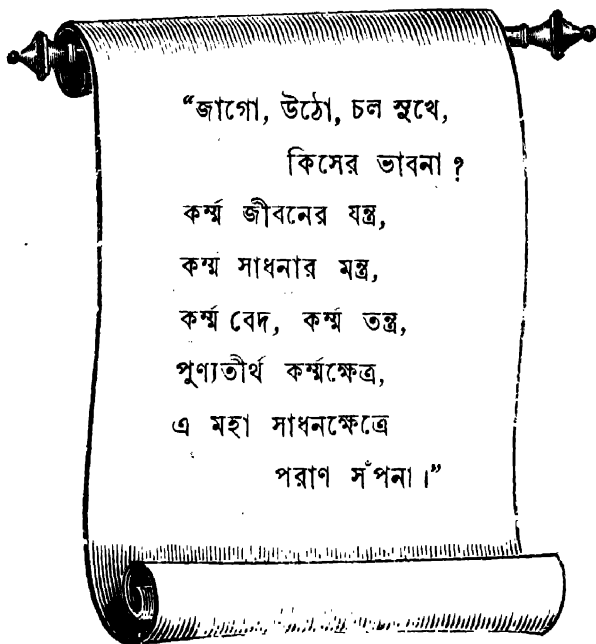 “জাগো, উঠো, চল সুখে,
কিসের ভাবনা ?
কর্ম্ম জীবনের যন্ত্র,
কর্ম্ম সাধনার মন্ত্র,
কর্ম্ম বেদ, কর্ম্ম তন্ত্র,
পুণ্যতীর্থ কর্ম্মক্ষেত্র,
এ মহা সাধনক্ষেত্রে
পরাণ সঁপনা।”